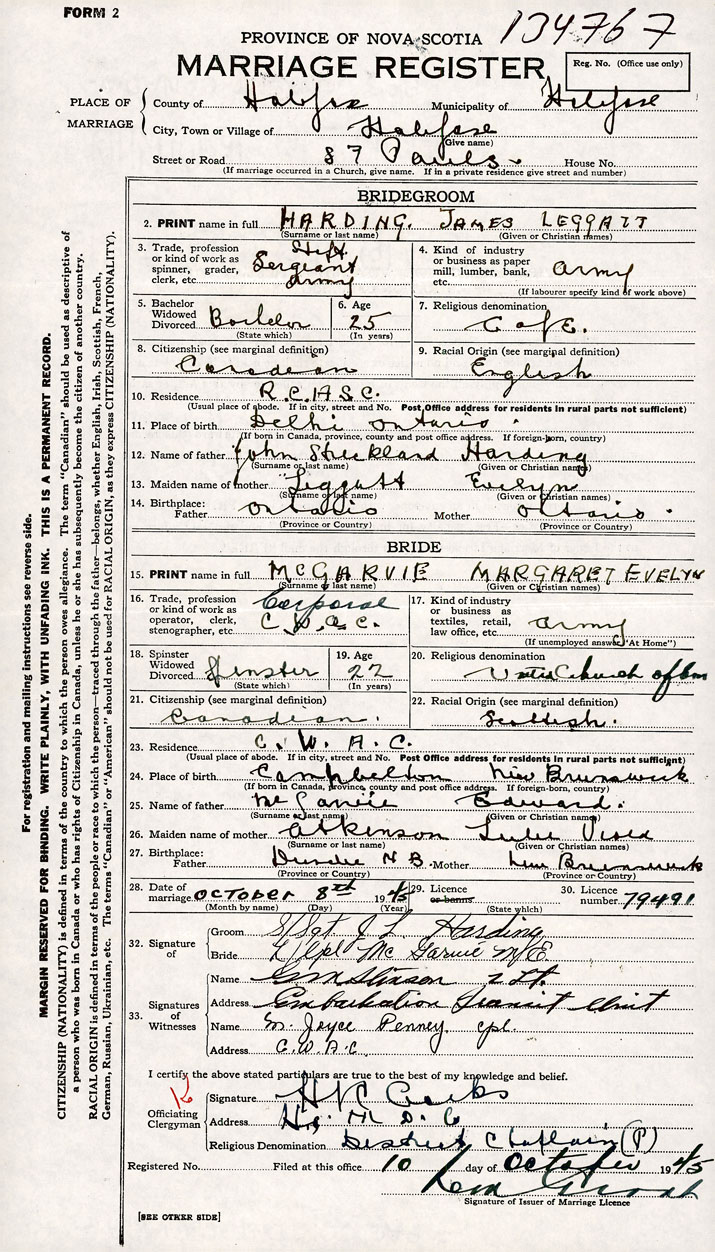 FORM 2
134767
PROVINCE OF NOVA SCOTIA
MARRIAGE REGISTER
Reg. No. (Office use only)
PLACE OF MARRIAGE
County of Halifax Municipality of Halifax
City, Town or Village of Halifax
(Give name)
Street or Road St Pauls House No.
(If marriage occurred in a Church, give name. If in a private residence give street and number)
BRIDEGROOM
2. PRINT name in full HARDING. JAMES LEGGATT
(Surname or last name) (Given or Christian names)
3. Trade, profession or kind of work as spinner, grader, clerk, etc. Staff Sergeant Army
4. Kind of industry or business as paper mill, lumber, bank, etc. Army
(If labourer specify kind of work above)
5. Bachelor Widowed Divorced Bachelor
(State which)
6. Age 25
(In years)
7. Religious denomination C of E.
8. Citizenship (see marginal definition) Canadian
9. Racial Origin (see marginal definition) English
10. Residence R.C.A.S.C.
(Usual place of abode. If in city, street and No. Post Office address for residents in rural parts not sufficient)
11. Place of birth Delhi Ontario
(If born in Canada, province, county and post office address. If foreign-born, country)
12. Name of father John Strickland Harding
(Surname or last name) (Given or Christian names)
13. Maiden name of mother Liggatt Evelyn
(Surname or last name) (Given or Christian names)
14. Birthplace: Father Ontario Mother Ontario
(Province or Country) (Province or Country)
BRIDE
15. PRINT name in full McGARVIE MARGARET EVELYN
(Surname or last name) (Given or Christian names)
16. Trade, profession or kind of work as operator, clerk, stenographer, etc. Corporal C.W.A.C.
17. Kind of industry or business as textiles, retail, law office, etc. Army
(If unemployed answer "At Home")
18. Spinster Widowed Divorced Spinster
(State which)
19. Age 22
(In years)
20. Religious denomination United Church of Can
21. Citizenship (see marginal definition) Canadian.
22. Racial Origin (see marginal definition) Scottish.
23. Residence C. W. A. C.
(Usual place of abode. If in city, street and No. Post Office address for residents in rural parts not sufficient)
24. Place of birth Campbelton New Brunswick
(If born in Canada, province, county and post office address. If foreign-born, country)
25. Name of father McGarvie Edward.
(Surname or last name) (Given or Christian names)
26. Maiden name of mother Atkinson Lulu
(Surname or last name) (Given or Christian names)
27. Birthplace: Father N B. Mother New Brunswick
(Province or Country)
28. Date of marriage OCTOBER 8th 1945
(Month by name) (Day) (Year)
29. Licence or banns
(State which)
30. Licence number 79491
32. Signature of
Groom S/Sgt J L Harding
Bride L/Cpl McGarvie M/E
33. Signatures of Witnesses
Name Stinson 2 Lt.
Address Embarkation Transit Unit
Name M. Joyce Penney cpl.
Address C.W.A.C.
I certify the above stated particulars are true to the best of my knowledge and belief.
Officiating Clergyman
Signature
Address Hq. M D. 6
Religious Denomination District Chaplain (P)
Registered No. Filed at this office 10 day of October 1945
Signature of Issuer of Marriage Licence
[SEE OTHER SIDE]
For registration and mailing instructions see reverse side.
MARGIN RESERVED FOR BINDING. WRITE PLAINLY, WITH UNFADING INK. THIS IS A PERMANENT RECORD.
CITIZENSHIP (NATIONALITY) is defined in terms of the country to which the person owes allegiance. The term "Canadian" should be used as descriptive of
a person who was born in Canada or who has rights of Citizenship in Canada, unless he or she has subsequently become the citizen of another country.
RACIAL ORIGIN is defined in terms of the people or race to which the person—traced through the father—belongs, whether English, Irish, Scottish, French,
German, Russian, Ukrainian, etc. The terms "Canadian" or "American" should not be used for RACIAL ORIGIN, as they express CITIZENSHIP (NATIONALITY).